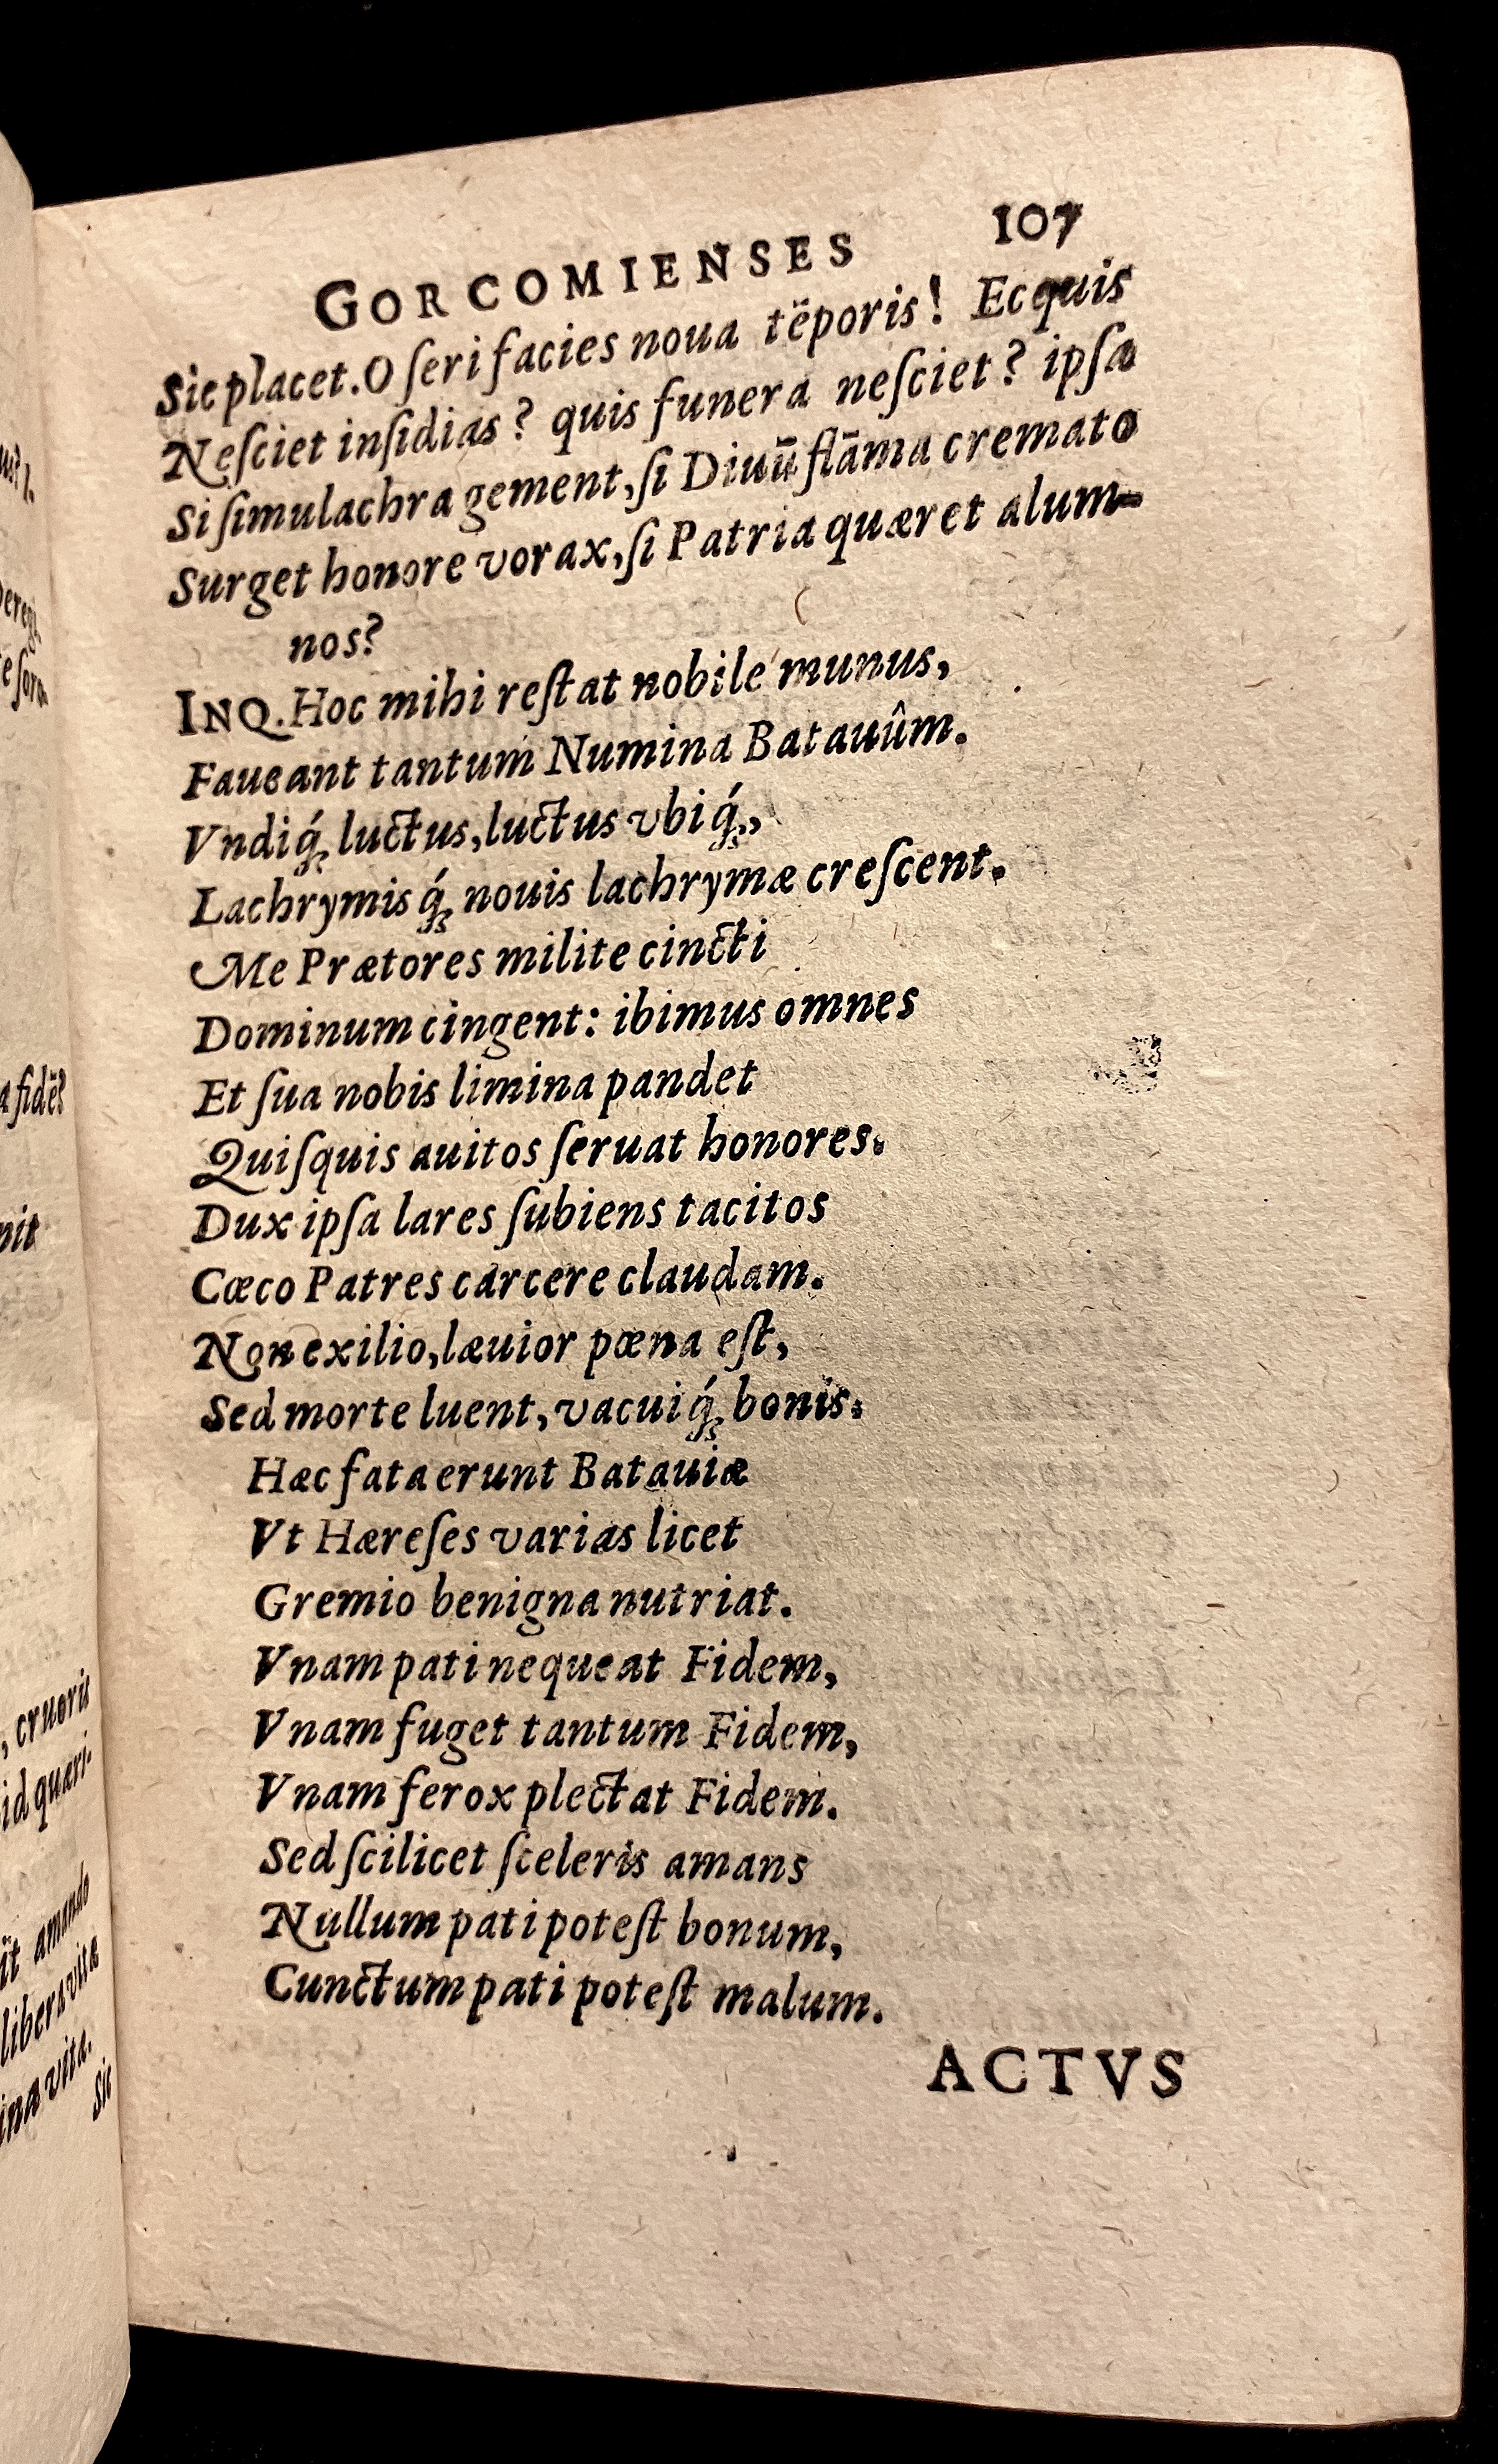 GORCOMIENSES 107
Sic placet. O ſeri facies noua tẽporis! Ecquis
Neſciet inſidias? quis funera neſciet? ipſa
Si ſimulachra gement, ſi Diuũ flãma cremato
Surget honore vorax, ſi Patria quæret alum-
nos?
INQ. Hoc mihi reſtat nobile munus,
Faueant tantum Numina Batauûm.
Vndiq́ꝫ luctus, luctus vbiq́ꝫ,
Lachrymisq́ꝫ nouis lachrymæ creſcent.
Me Prætores milite cincti
Dominum cingent: ibimus omnes
Et ſua nobis limina pandet
Quiſquis auitos ſeruat honores.
Dux ipſa lares ſubiens tacitos
Cœco Patres carcere claudam.
Non exilio, læuior pœna eſt,
Sed morte luent, vacuiq́ꝫ bonis.
Hæc fata erunt Batauiæ
Vt Hæreſes varias licet
Gremio benigna nutriat.
Vnam pati nequeat Fidem,
Vnam fuget tantum Fidem,
Vnam ferox plectat Fidem.
Sed ſcilicet ſceleris amans
Nullum pati poteſt bonum,
Cunctum pati poteſt malum.
ACTVS